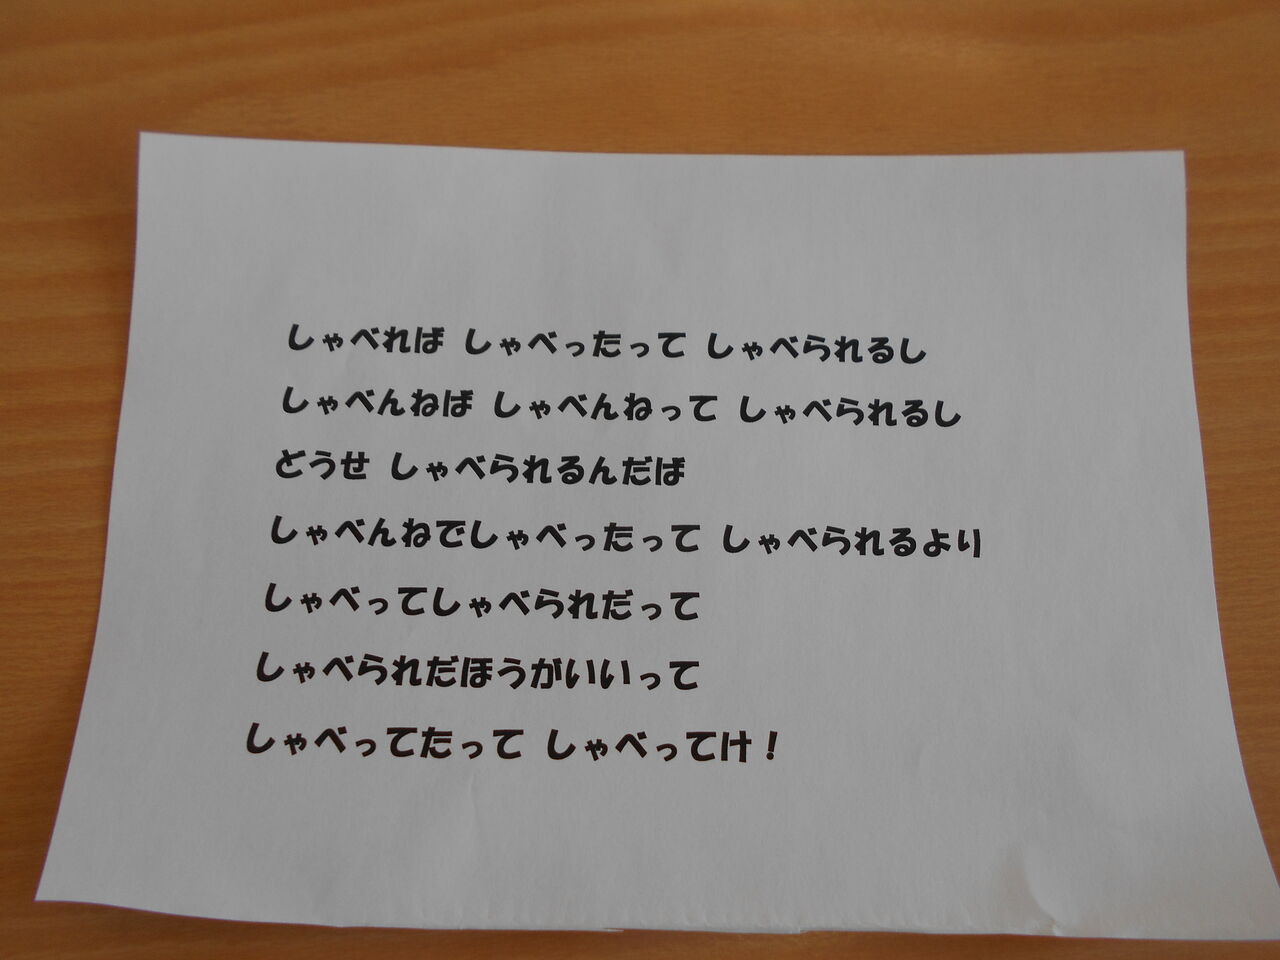 しゃべれば しゃべったって しゃべられるし
しゃべんねば しゃべんねって しゃべられるし
どうせ しゃべられるんだば
しゃべんねでしゃべったって しゃべられるより
しゃべってしゃべられだって
しゃべられだほうがいいって
しゃべってたって しゃべってけ！